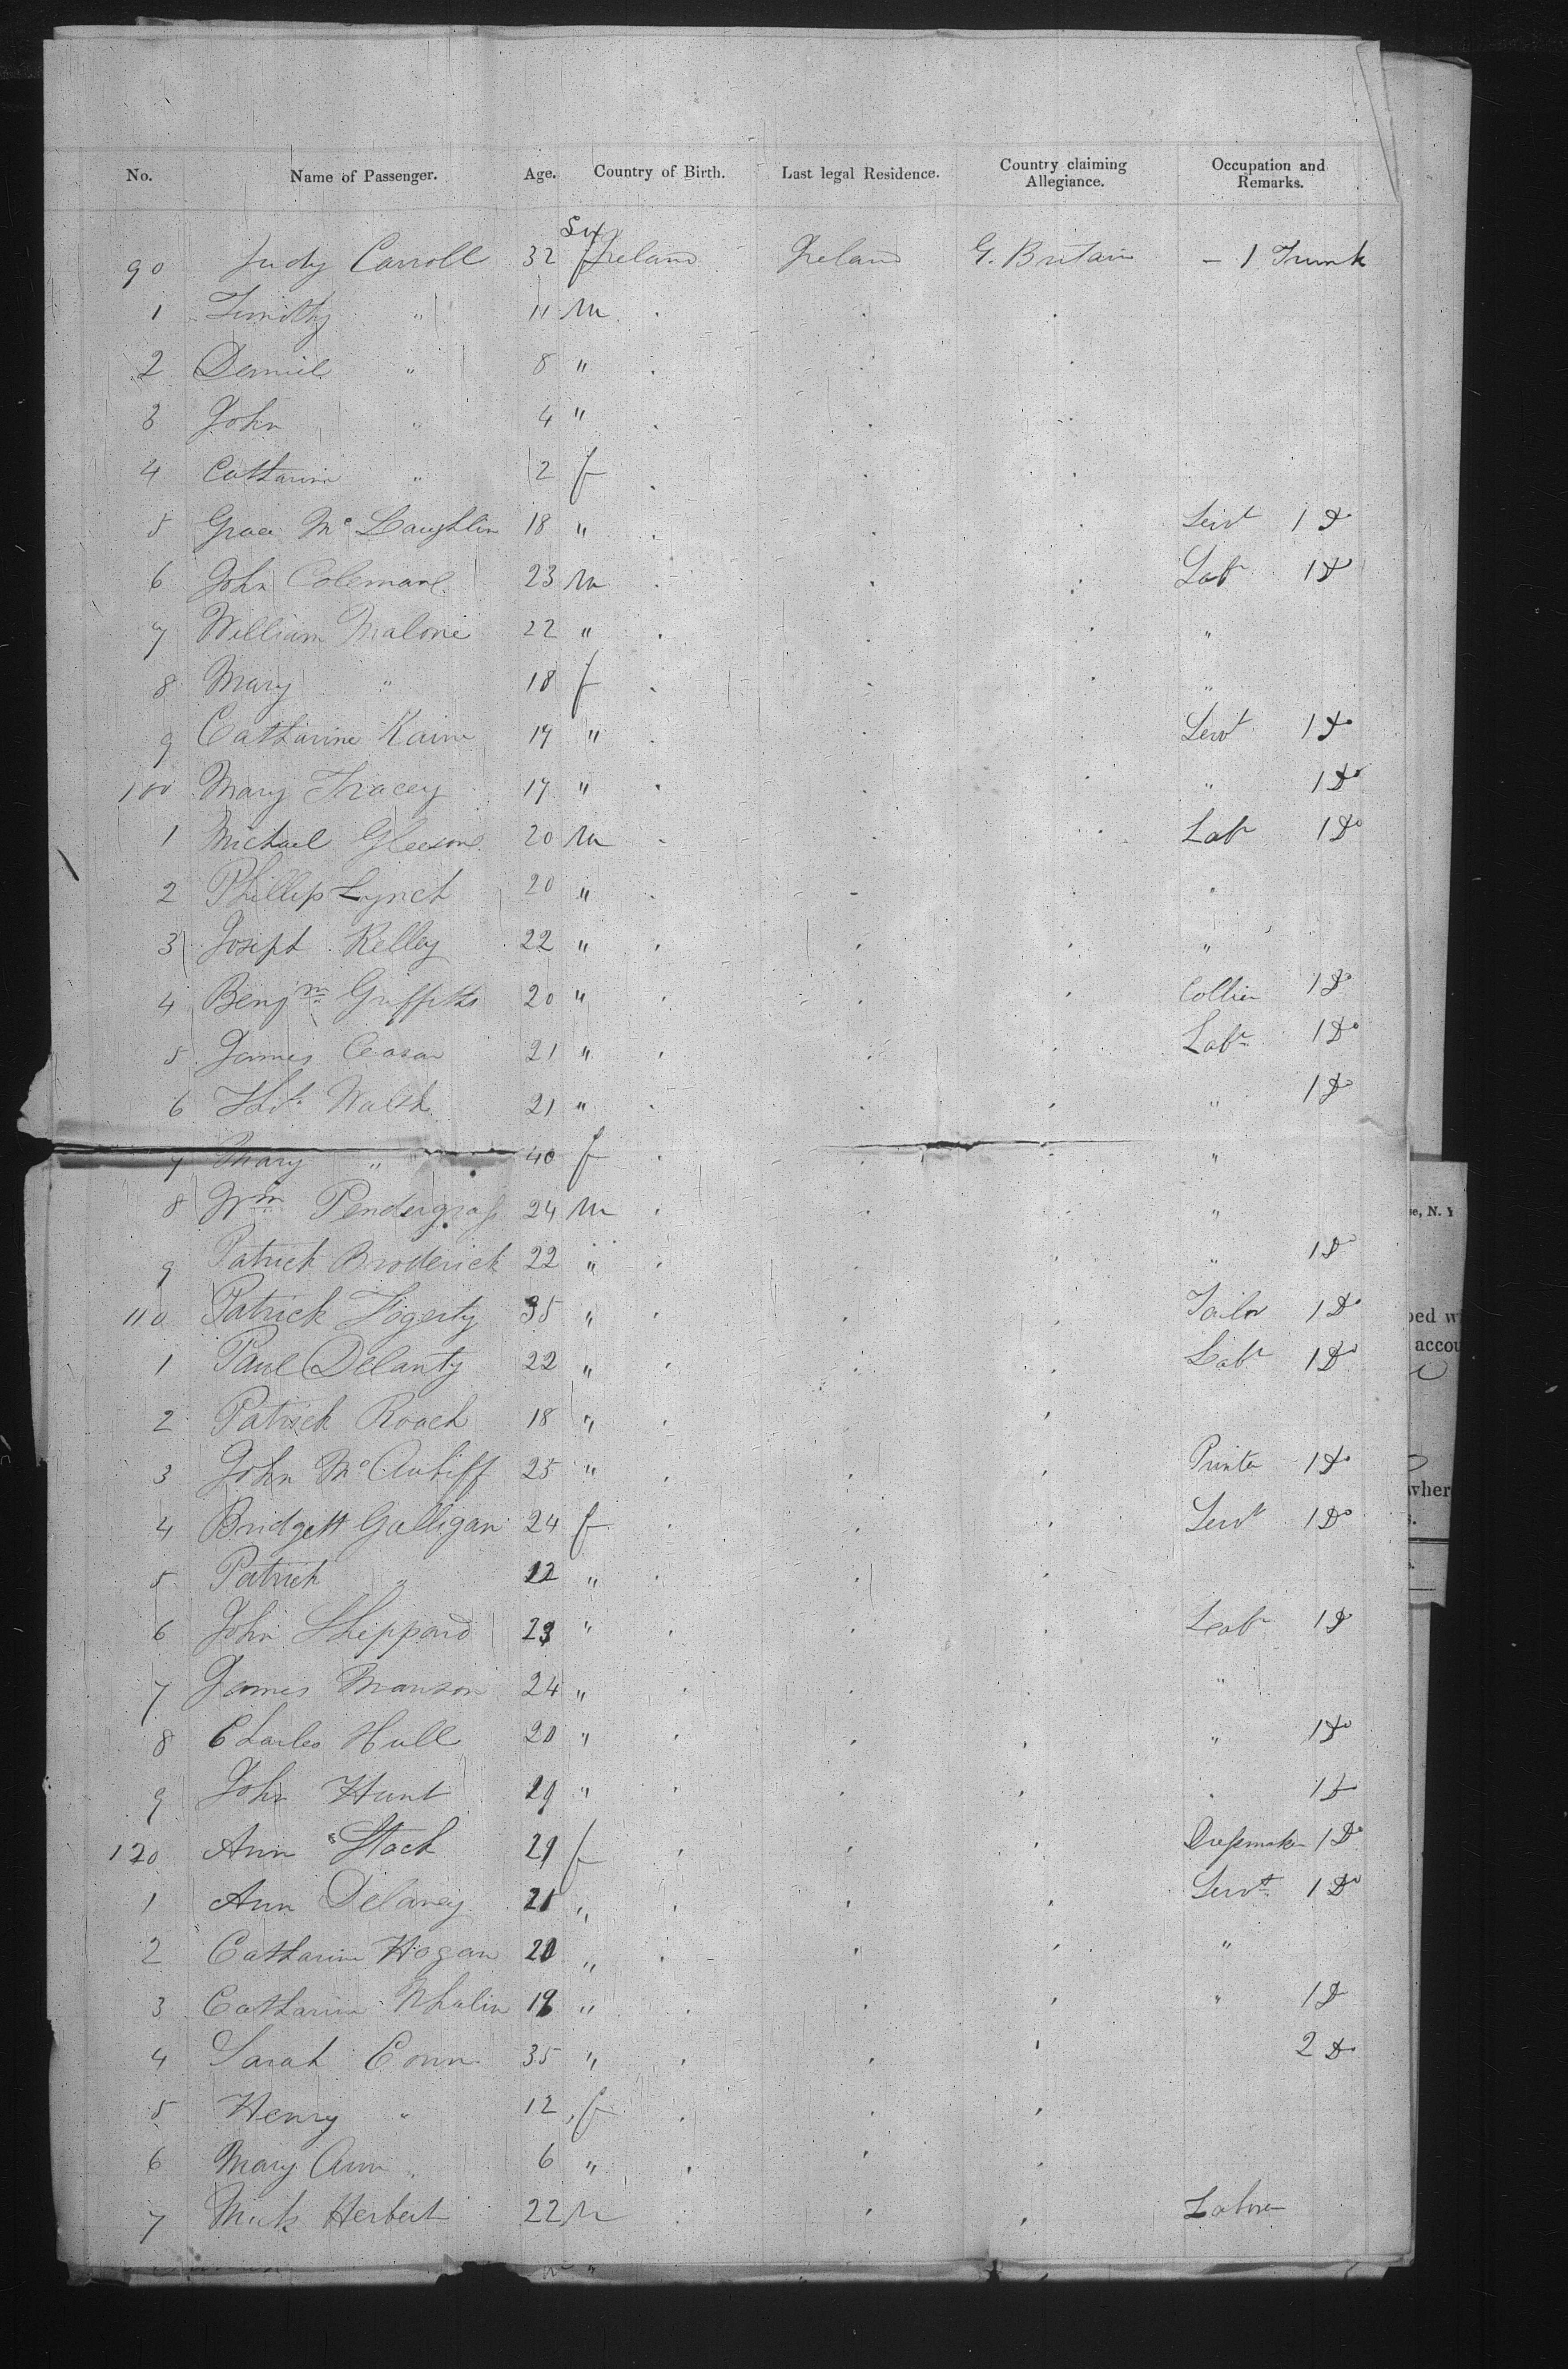 No. Name of Passenger. Age. Country of Birth. Last legal Residence. Country claiming Allegiance. Occupation and Remarks.
Sex
90 Judy Carroll 32 f Ireland Ireland G. Britain - 1 Trunk
1 Timothy " 11 m
2 Daniel " 8 "
3 John " 4 "
4 Catharine " 2 f
5 Grace Mc Laughlin 18 " Servt 1 Do
6 John Coleman 23 m Labr 1 Do
7 William Malone 22 " "
8 Mary " 18 f "
9 Catharine Kaine 17 " Servt 1 Do
100 Mary Tracey 17 " " 1 Do
1 Michael Gleeson 20 m Labr 1 Do
2 Phillip Lynch 20 " "
3 Joseph Kelley 22 " "
4 Benjmn Griffiths 20 " Collier 1 Do
5 James 21 " Labr 1 Do
6 Thos Walsh 21 " " 1 Do
7 Mary " 40 f "
8 Wm Pendergrass 24 m "
9 Patrick Broderick 22 " " 1 Do
110 Patrick Fogerty 35 " Tailor 1 Do
1 Paul Delanty 22 " Labr 1 Do
2 Patrick Roach 18 "
3 John Mc Auliff 25 " Printer 1 Do
4 Bridgett Galligan 24 f Servt 1 Do
5 Patrick " 12 "
6 John Sheppard 23 " Labr 1 Do
7 James Manson 24 " "
8 Charles Hull 20 " " 1 Do
9 John Hunt 29 " " 1 Do
120 Ann Stack 21 f Dressmaker 1 Do
1 Ann Delaney 21 " Servt 1 Do
2 Catharine Hogan 20 " "
3 Catharine Whalin 19 " " 1 Do
4 Sarah Conn 35 " 2 Do
5 Henry " 12 f
6 Mary Ann " 6 "
7 Mick Herbert 22 m Laborer
se, N. Y
ped w
accou
wher